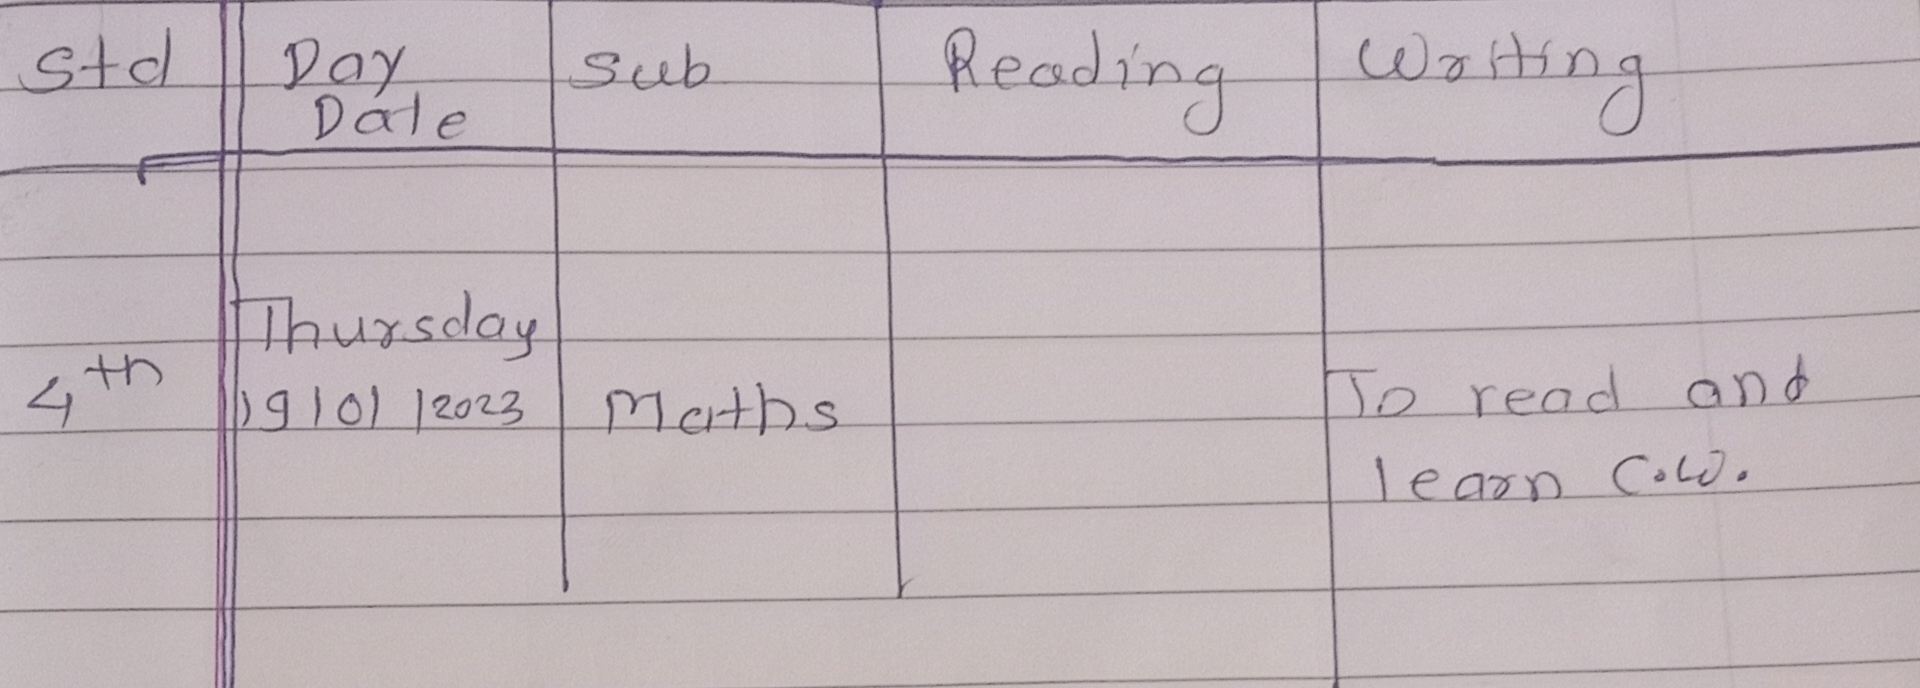 Std Day Sub Reading Writing
Date
Thursday
4th 19/01/2023 Maths To read and
learn C.W.